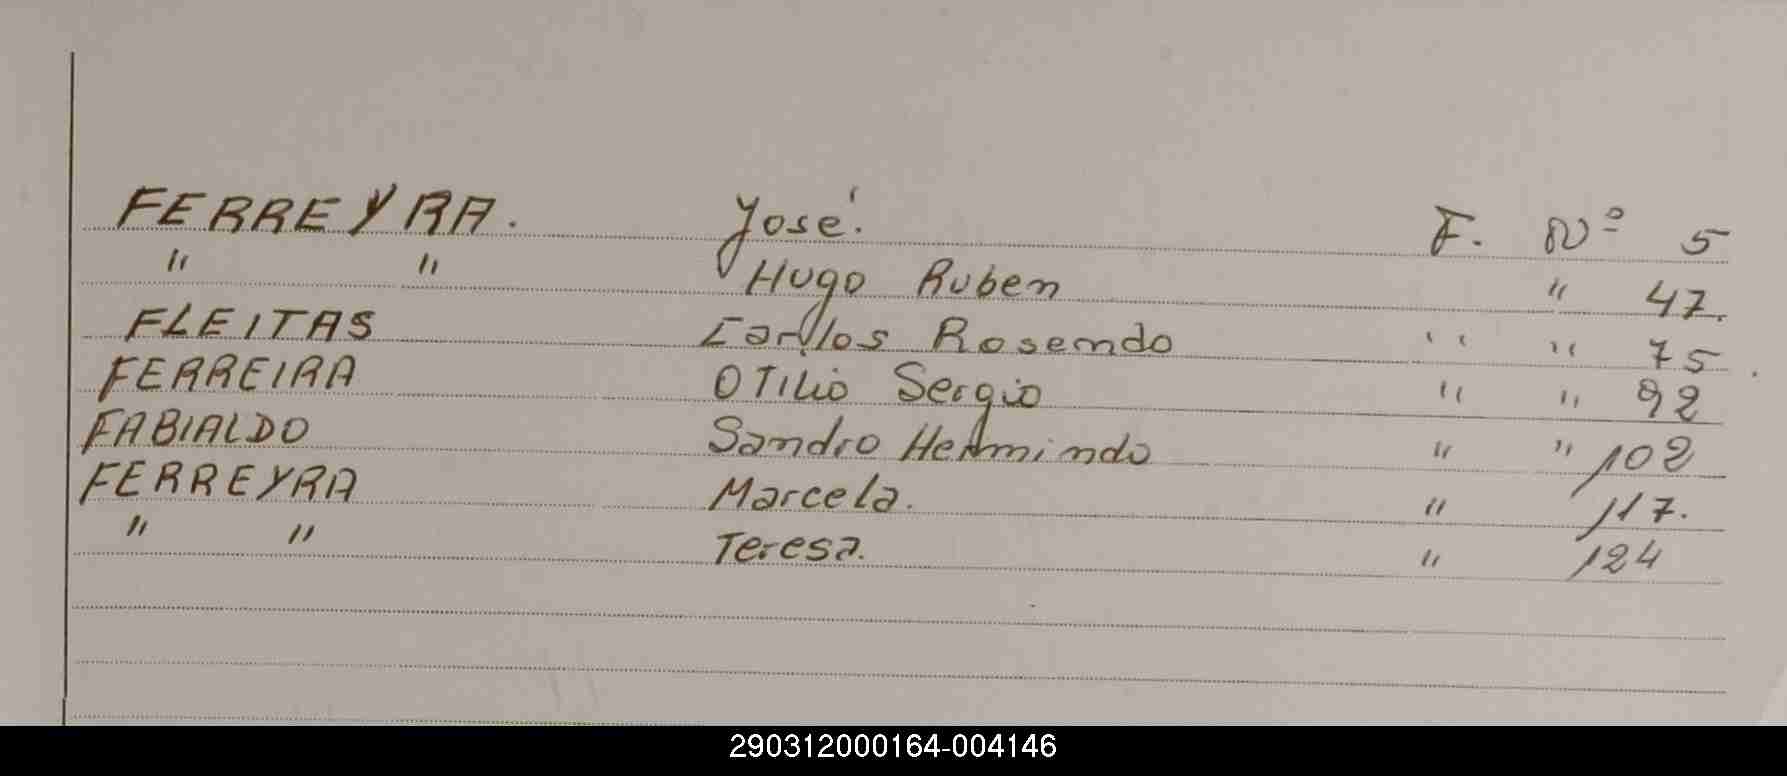 FERREYRA. José. F. Nº 5
" " Hugo Ruben " 47.
FLEITAS Carlos Rosendo " " 75
FERREIRA OTILIO Sergio " " 92
FABIALDO Sandro Hermindo " " 102
FERREYRA Marcela. " 117.
" " Teresa. " 124
290312000164-004146